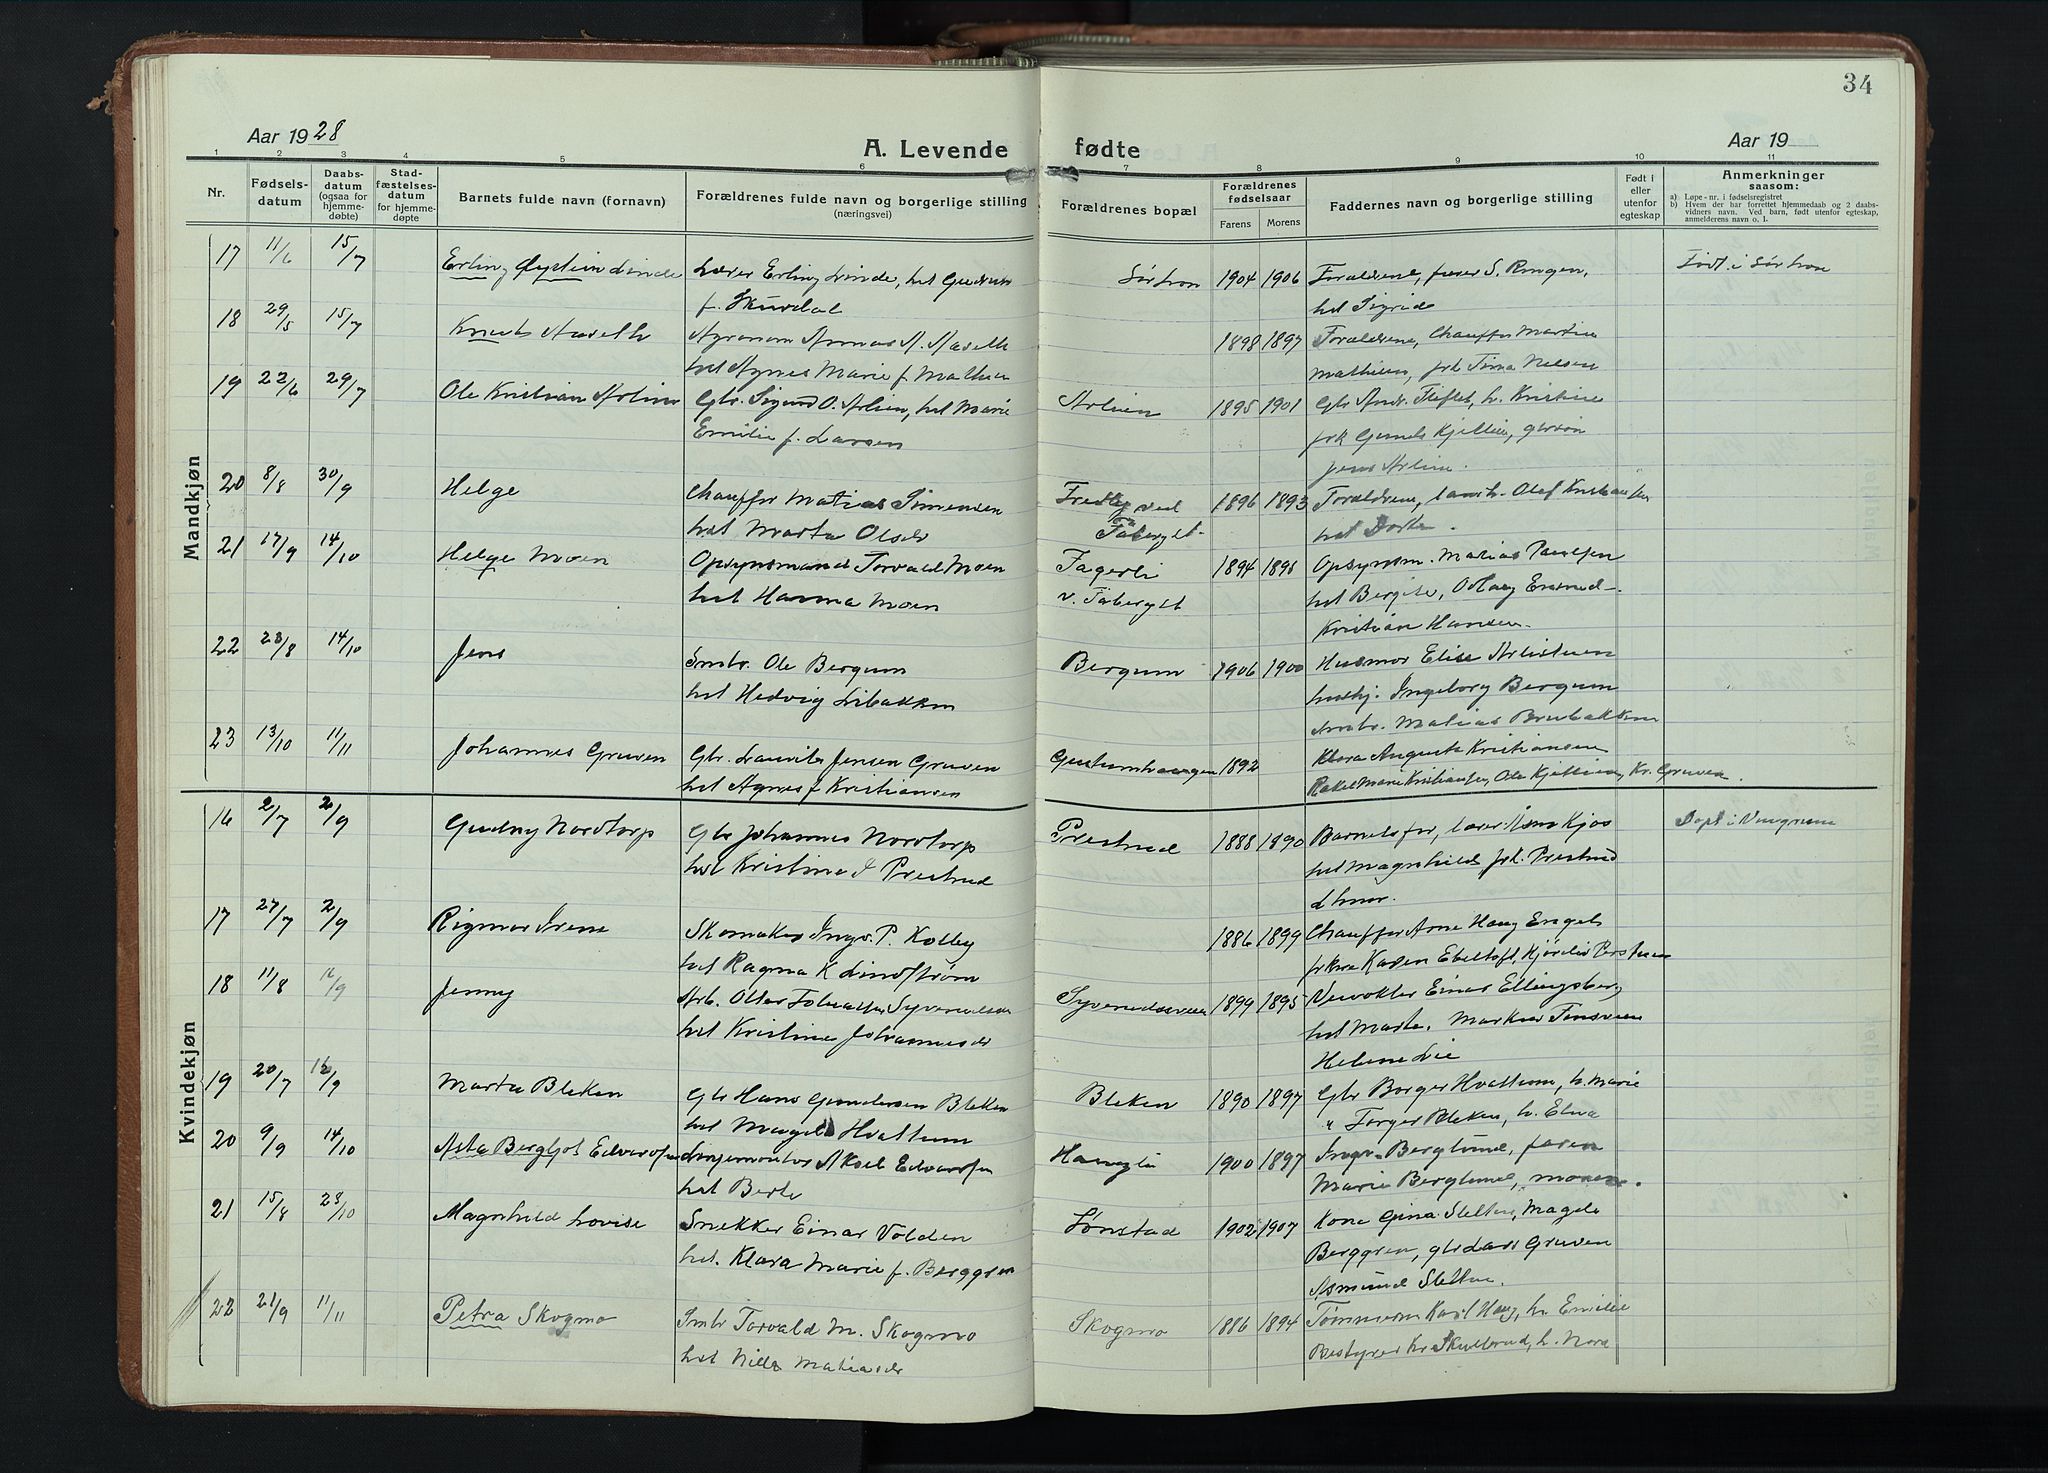 34
Aar 1928
A. Levende fødte
Aar 19
1 2 3 4 5 6 7 8 9 10 11
Nr.
Fødsels-
datum
Daabs-
datum
(ogsaa for
hjemme-
døbte)
Stad-
fæstelses-
datum
for hjemme-
døpte
Barnets fulde navn (fornavn)
Forældrenes fulde navn og borgerlige stilling
(næringsvei)
Forældrenes bopæl
Forældrenes
fødselsaar
Farens Morens
Faddernes navn og borgerlige stilling
Født i
eller
utenfor
egteskap
Anmerkninger
saasom:
a) Løpe-nr. i fødselsregistret
b) Hvem der har forrettet hjemmedaab og 2 daabs-
vidners navn. Ved barn, født utenfor egteskap,
anmelderens navn o. l.
Mandkjøn
17 11/6 15/7 Erling Øystein Linde Lærer Erling Linde, hst Gudrun
f. Skurdal
Sørfron 1904 1906 Forældrene, S. Ringen,
hst Sigrid
Født i Sørfron
18 29/5 15/7 Knut Aaseth Agronom A. Aaseth
hst Agnes Marie f. Mathisen
1898 1897 Forældrene, Chauffør Martin
Mathisen, frk Nelsen
19 22/6 29/7 Ole Kristian Arlien Gbr. Sigurd O. Arlien, hst Marie
Emilie f. Larsen
Arlien 1895 1901 Gbr Andr. Fliflet, h. Kristine
frk Kjellien,
Jens Arlien.
20 8/8 30/9 Helge Chauffør Matias Simensen
hst Marta Olsdr
Fredly ved
Faabergst.
1896 1893 Forældrene, Olaf Kristiansen
hst Dorte.
21 17/9 14/10 Helge Moen Opsynsmand Torvald Moen
hst Hanna Moen
Fagerli
v. Faabergst
1894 1895 Opsynsm. Matias Paulsen
hst Bergite, Oddlaug
Kristian Hansen.
22 23/8 14/10 Jens Smbr. Ole Bergum
hst Hedvig Libakken
Bergum 1906 1900 Husmor Elise Arlistuen
hushj. Ingeborg Bergum
Matias Brubakken
23 13/10 11/11 Johannes Gruven Gbr. Lauritz Jensen Gruven
hst Agnes f Kristiansen
1892 Klara Augusta Kristiansen
Rakel Marie Kristiansen, Ole Kjellien, Kr. Gruven.
Kvindekjøn
16 2/7 2/9 Gudny Nordtorp Gbr Johannes Nordtorp
hst Kristine f Prestrud
Prestrud 1888 1890 Barnets far, lærer Kjos
hst Magnhild, frk. Prestrud
Døpt i Vingrom
17 27/7 2/9 Rigmor Irene Skomaker Ingv. P. Kolby
hst Ragna K Lindstrøm
1886 1899 Chauffør Arne Haug Engels
Karen Ebeltoft,
18 11/8 16/9 Jenny Arb. Otter Syverudsdr
hst Kristine Johannesdr
Syverudsveen 1899 1895 Einar Ellingsberg
hst Marte.
Helene Lie
19 20/7 16/9 Marta Bleken Gbr Hans Gundersen Bleken
hst Magda Hvattum
Bleken 1890 1897 Gbr Borger Hvattum, h. Marie
" Torger Bleken, h. Elna
20 9/9 14/10 Asta Bergljot Edvardsen Linjemontør Aksel Edvardsen
hst Berte
1900 1897 Ingv. Berglund, faren
Marie Berglund, moren.
21 15/8 23/10 Magnhild Lovise Snekker Einar Volden
hst. Klara Marie f. Berggren
Lønstad 1902 1907 Kone Gina Sletten, Magda
Berggren, gbr Lars Gruven
Asmund Sletten.
22 21/9 11/11 Petra Skogmo Smbr Torvald M. Skogmo
hst Nilla Matiasdr
Skogmo 1886 1894 Tømmerm Karl Haug, h. Emilie
Bestyrer Kr Skullerud, h. Nora